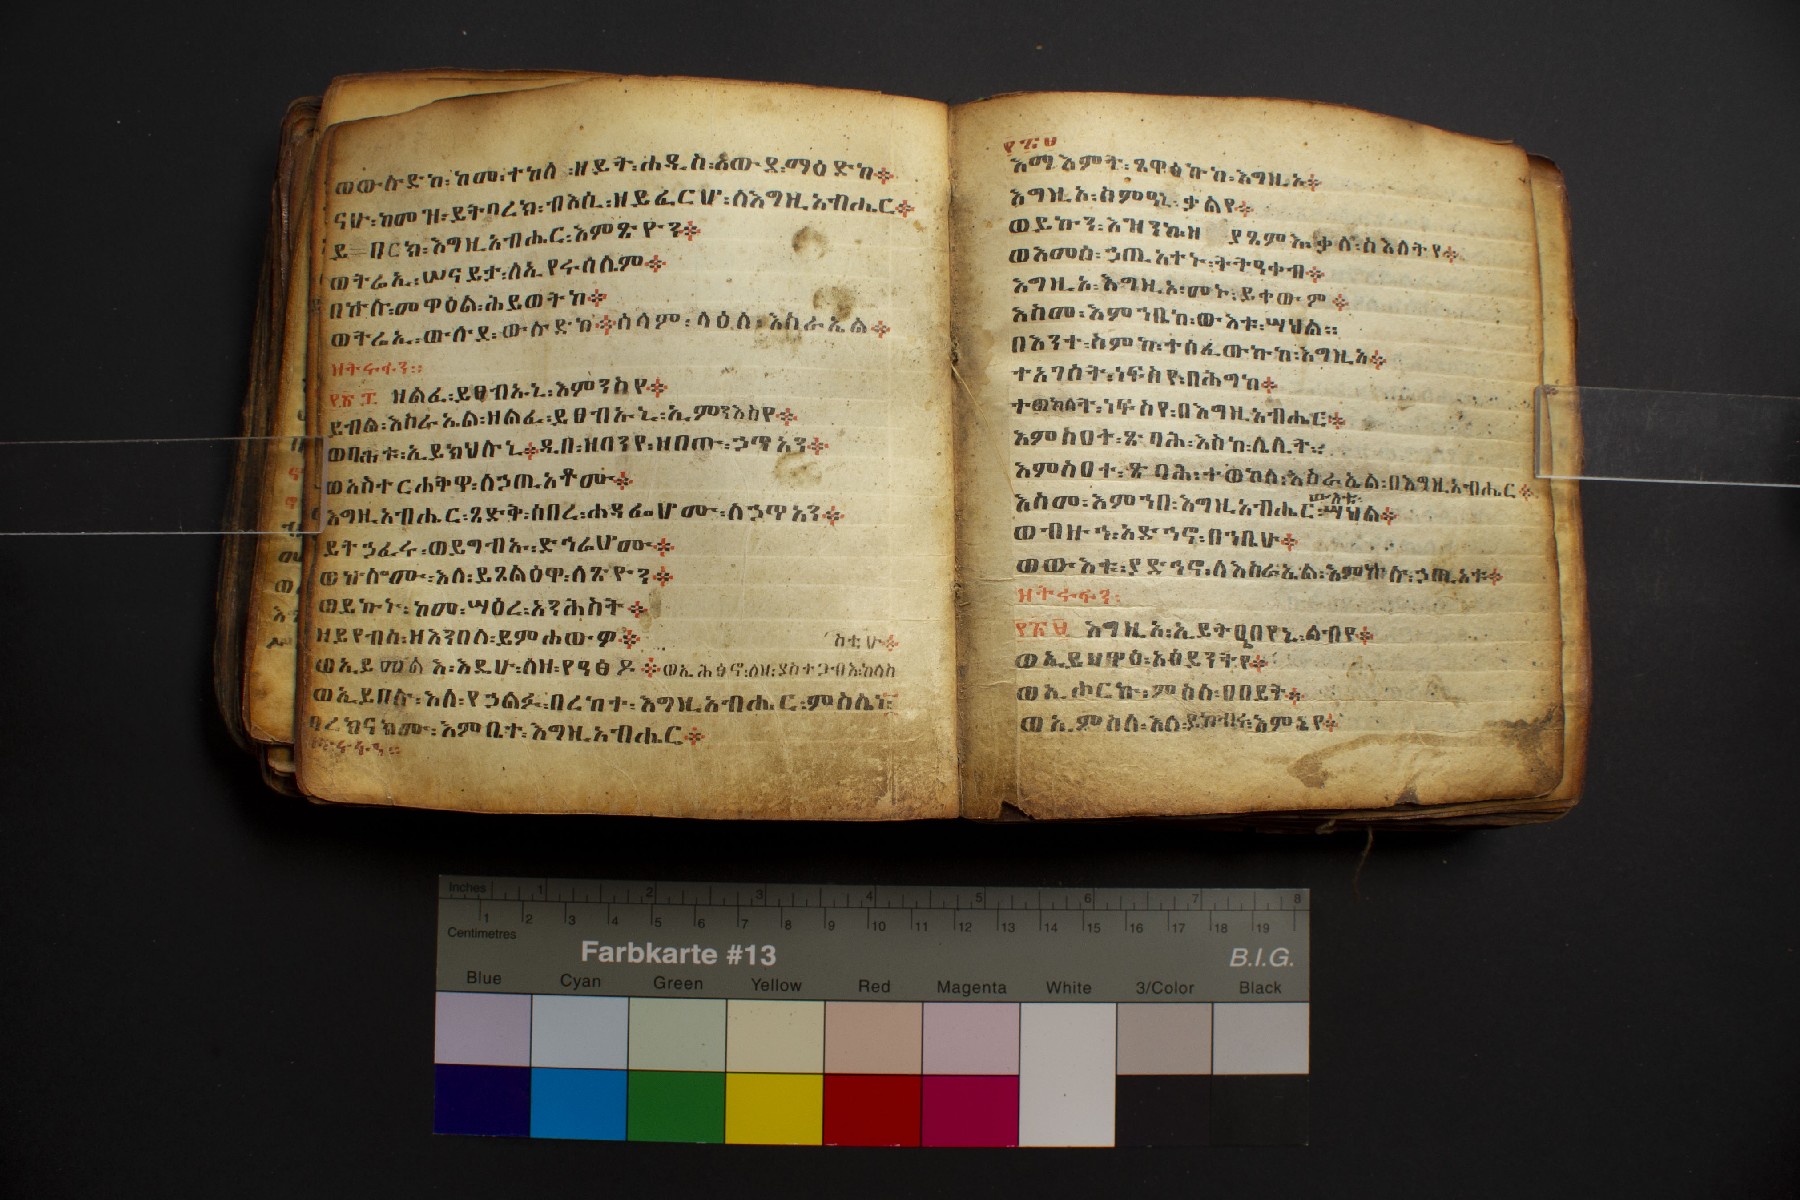 ወውሉድከ፡ከመ፡ተከለ፡ዘይት፡ሐዲስ፡አውደ፡ማዕድከ፨
ናሁ፡ከመዝ፡ይትባረክ፡ብእሲ፡ዘይፈርሆ፡ለእግዚአብሔር፨
ይባርክ፡እግዚአብሔር፡እምጽዮን፨
ወትሬኢ፡ሠናይታ፡ለኢየሩሳሌም፨
በኵሉ፡መዋዕል፡ሕይወትከ፨
ወትሬኢ፡ውሉደ፡ውሉድከ፨ሰላም፡ላዕለ፡እስራኤል፨
ዘትሩፋን።
ዘልፈ፡ይፀብኡኒ፡እምንስየ፨
ይብል፡እስራኤል፡ዘልፈ፡ይፀብኡኒ፡እምንእስየ፨
ወባሕቱ፡ኢይክህሉኒ፨ዲበ፡ዘባንየ፡ዘበጡ፡ኃጥአን፨
ወአስተርሐቅዋ፡ለኃጢአቶሙ፨
እግዚአብሔር፡ጻድቅ፡ሰበረ፡ሐዳፌሆሙ፡ለኃጥአን፨
ይትኃፈሩ፡ወይግብኡ፡ድኅሬሆሙ፨
ወኵሎሙ፡እለ፡ይጸልዕዋ፡ለጽዮን፨
ወይኩኑ፡ከመ፡ሣዕረ፡አንሕስት፨
ዘይየብስ፡ዘእንበለ፡ይምሐውዎ፨
ወኢይመልእ፡እዴሁ፡ለዘ፡የዓፅዶ፨ወኢሕፅኖ፡ለዘ፡ያስተጋብእ፡ከላስ
ስቲሁ፨
ወኢይበሉ፡እለ፡የኃልፉ፡በረከተ፡እግዚአብሔር፡ምስሌነ፡
ባረክናክሙ፡እምቤተ፡እግዚአብሔር፨
ዘትሩፋን።
እማእምቅ፡ጸዋዕኩከ፡እግዚኦ፨
እግዚኦ፡ስምዓኒ፡ቃልየ፨
ወይኩን፡እዝንከ፡ዘያጸምእ፡ቃለ፡ስእለትየ፨
ወእመሰ፡ኃጢአተኑ፡ትትዓቀብ፨
እግዚኦ፡እግዚኦ፡መኑ፡ይቀውም፨
እስመ፡እምኀቤከ፡ውእቱ፡ሣህል።
በእንተ፡ስምከ፡ተሰፈውኩከ፡እግዚኦ፨
ተአገሰት፡ነፍስየ፡በሕግከ፨
ተወከለት፡ነፍስየ፡በእግዚአብሔር፨
እምሰዐት፡ጽባሕ፡እስከ፡ሌሊት።
እምሰዐተ፡ጽባሕ፡ተወከለ፡እስራኤል፡በእግዚአብሔር፨
ውእቱ፡
እስመ፡እምኀበ፡እግዚአብሔር፡ሣህል፨
ወብዙኅ፡አድኅኖ፡በኀቤሁ፨
ወውእቱ፡ያድኅኖ፡ለእስራኤል፡እምኵሉ፡ኃጢአቱ፨
ዘትሩፋን፡
እግዚኦ፡ኢይትዐበየኒ፡ልብየ፨
ወኢይዘኀ፡አዕይንትየ፨
ወኢሖርኩ፡ምስለ፡ዐበይት፨
ወኢምስለ፡እለ፡ያከብሩ፡እምኔየ፨